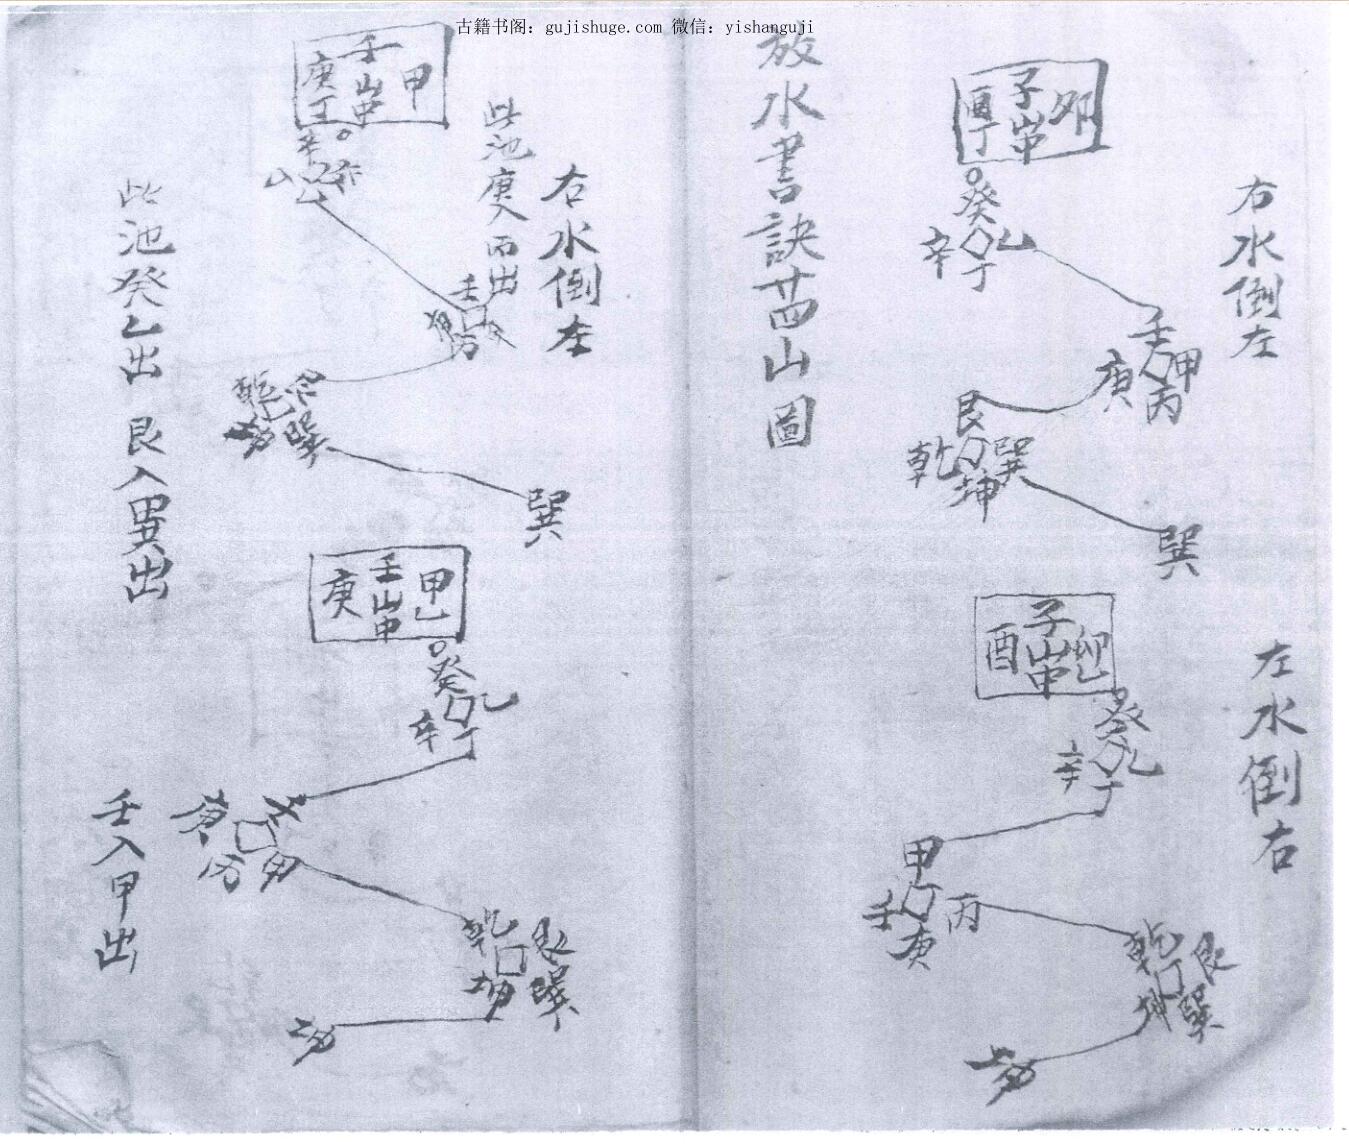 古籍书阁: gujishuge.com 微信: yishanguji
右水倒左
子山中
卯
酉丁
癸
乙
辛
丁
壬
甲
庚
丙
艮
巽
乾
坤
巽
左水倒右
子山中
卯乙
酉
癸
乙
辛
丁
甲
丙
壬
庚
乾
艮
坤
巽
坤
放水書訣廿四山圖
右水倒左
此池庚入丙出
壬山中
甲
庚丁
壬
乾
艮
坤
巽
巽
壬山中
甲乙
庚
癸
乙
辛
丁
壬
庚
甲
丙
乾
艮
坤
巽
坤
此池癸乙出 艮入巽出
壬入甲出